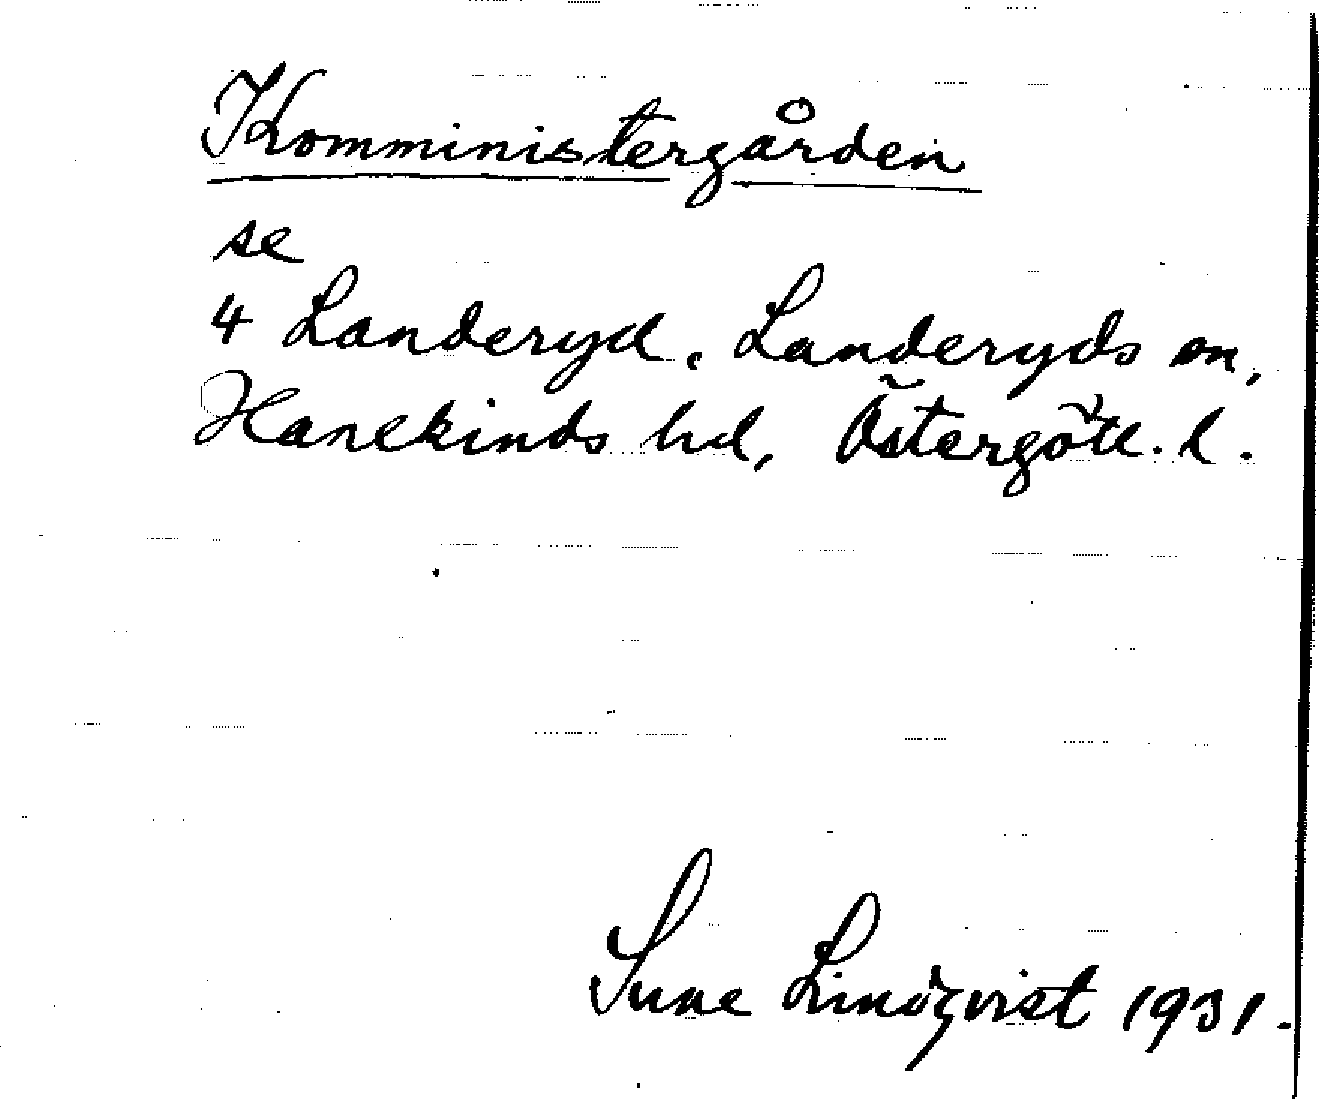 Komministergården
se
4 Landeryd, Landeryds sn,
Hanekinds hd, Östergötl. l.
Sune Lindqvist 1931.